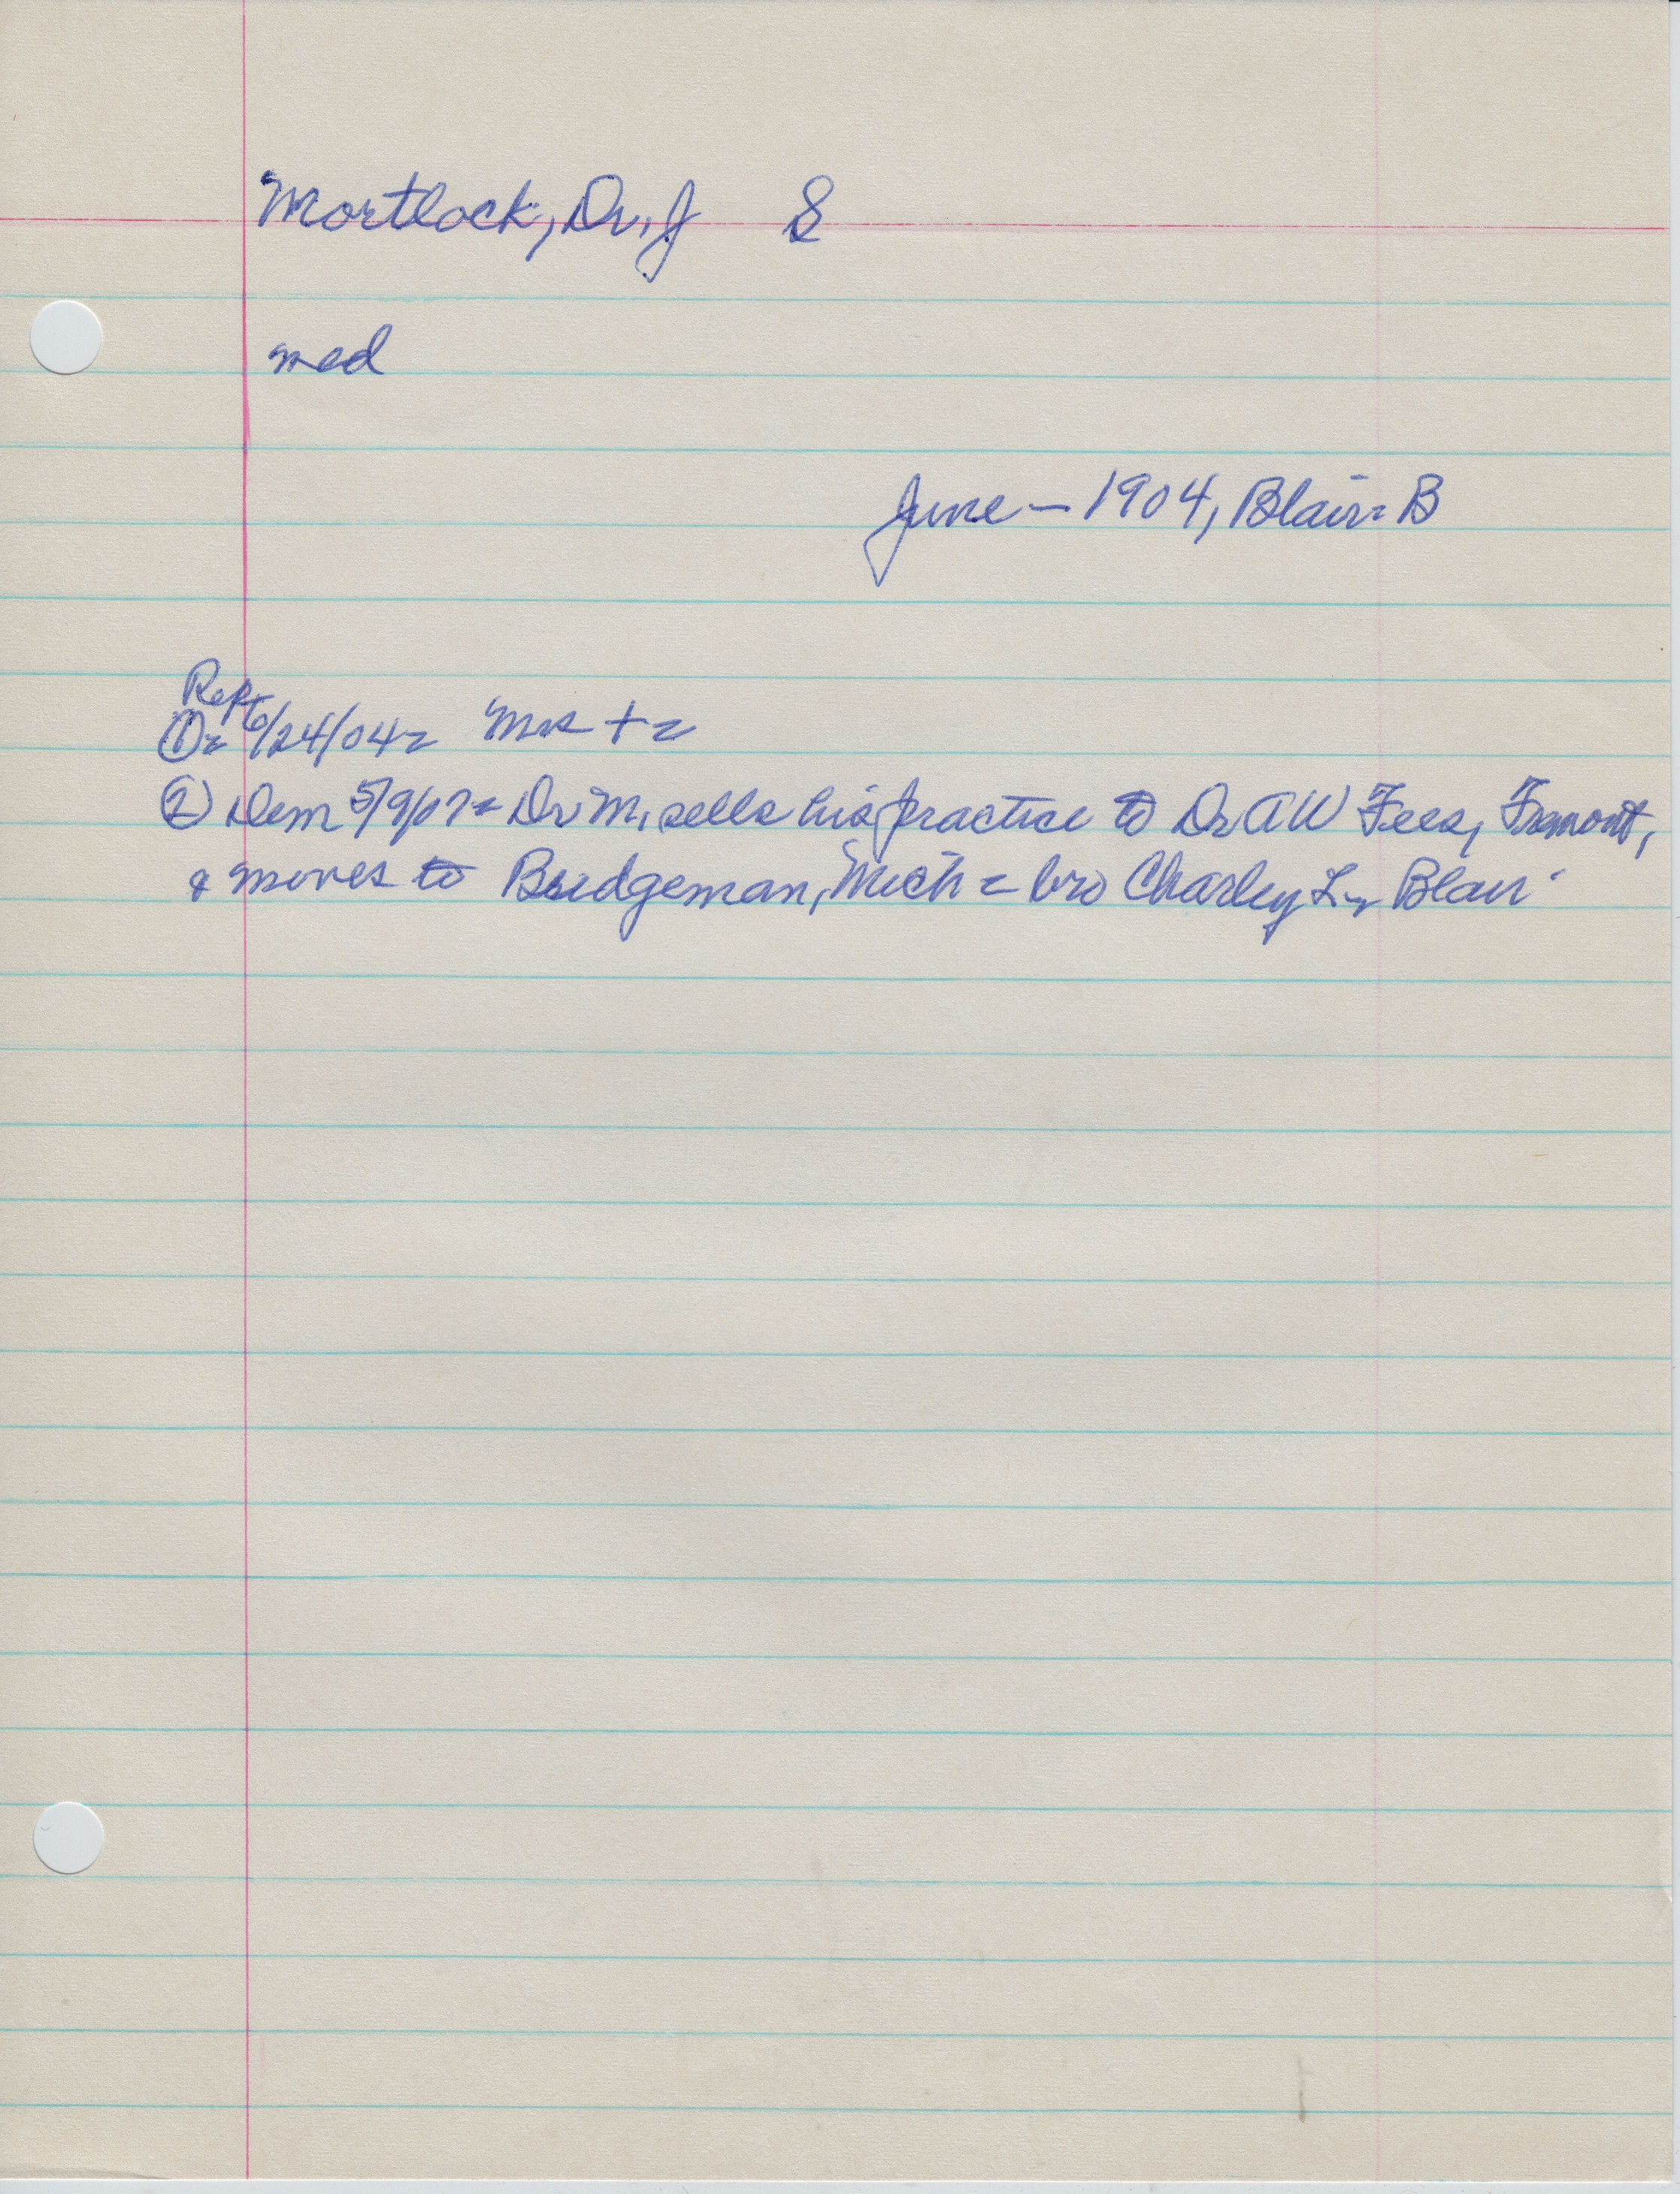 Mortlock, Dr. J S
med
June - 1904, Blair = B
Rept
① = 6/24/04 = Mrs + =
② Dem 5/9/07 = Dr M. sells his practice to Dr AW Fees, Fremont,
& moves to Bridgeman, Mich = bro Charley L - Blair